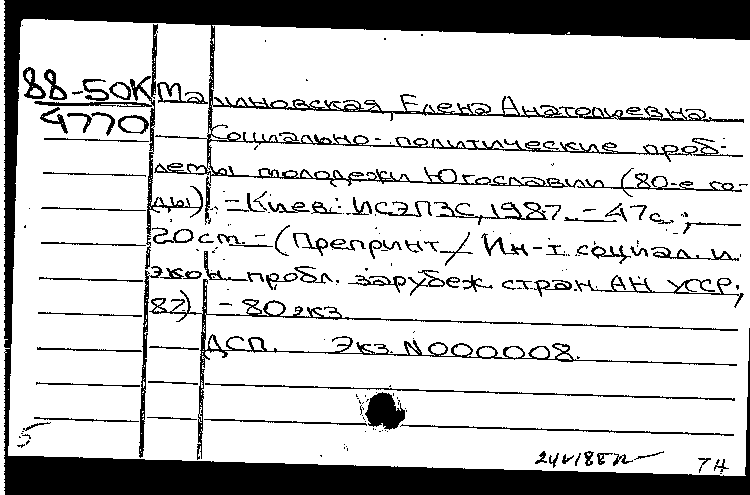 88-50К Малиновская, Елена Анатольевна.
4770 Социально-политические проб-
лемы молодежи Югославии (80-е го-
ды). - Киев: ИСЭПЗС, 1987. - 47с.;
20см. - (Препринт / Ин-т социал. и
экон. пробл. зарубеж. стран АН УССР;
87) - 80экз.
ДСП. Экз. N000008.
5 ТН